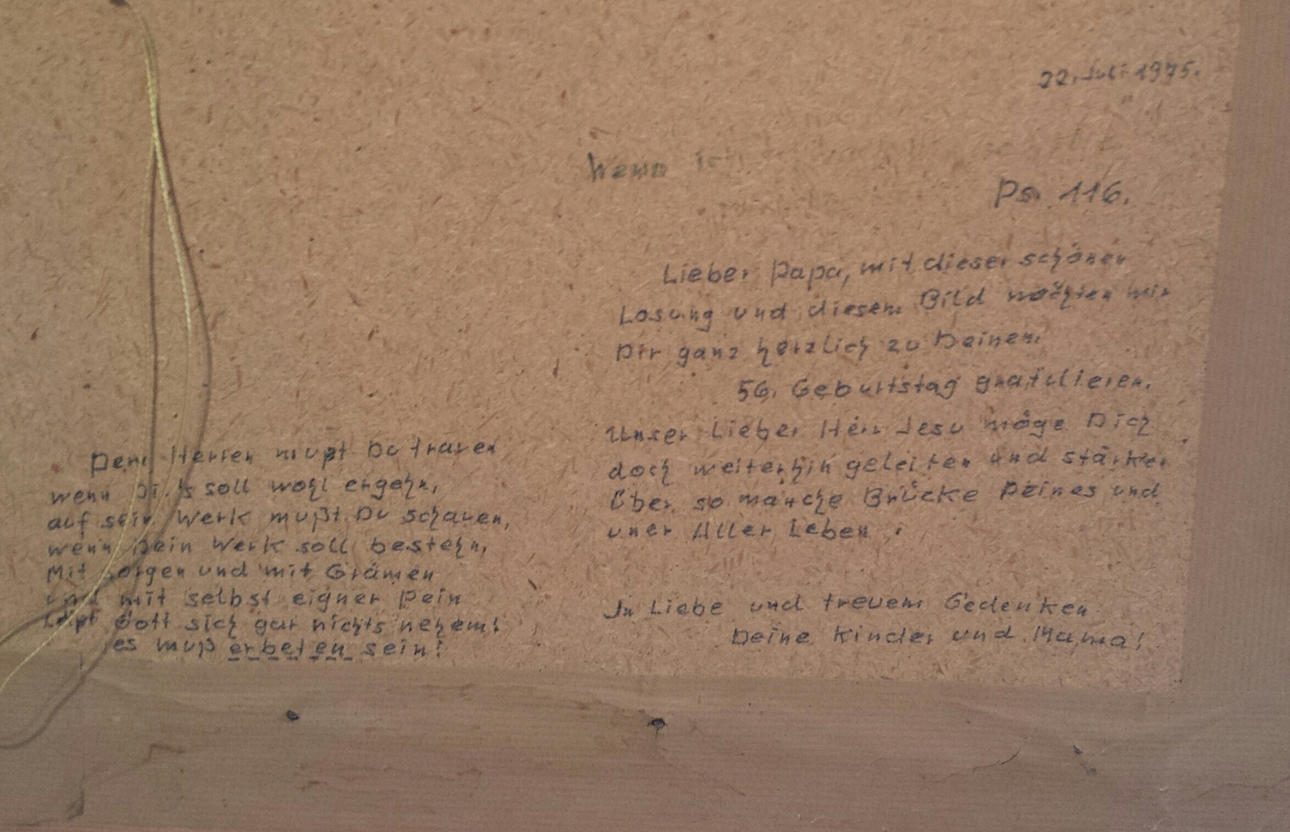 22. Juli 1975.
Wenn
Ps. 116.
Lieber Papa, mit dieser schönen
Losung und diesem Bild möchten wir
Dir ganz herzlich zu Deinem
56. Geburtstag gratulieren.
Unser Lieber Herr Jesu möge Dich
doch weiterhin geleiten und stärken
Über so manche Brücke Deines und
uner Aller Leben.
In Liebe und treuem Gedenken
Deine Kinder und Mama!
Dem Herren mußt Du trauen
wenn Dir's soll wohl ergehn,
auf sein Werk mußt Du schauen,
wenn Dein Werk soll bestehn,
Mit Sorgen und mit Grämen
und mit selbst eigner Pein
läßt Gott sich gar nichts nehem!
es muß erbeten sein!